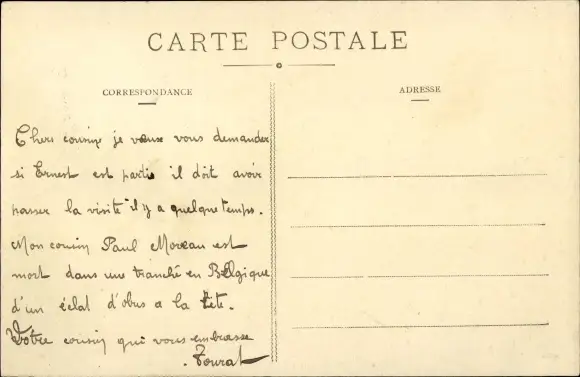 CARTE POSTALE
CORRESPONDANCE
ADRESSE
Chers cousins je veux vous demander
si Ernest est partis il doit avoir
passer la visite il y a quelque temps.
Mon cousin Paul Moreau est
mort dans une tranché en Belgique
d'un éclat d'obus a la tête.
Votre cousin qui vous embrasse
Tourat